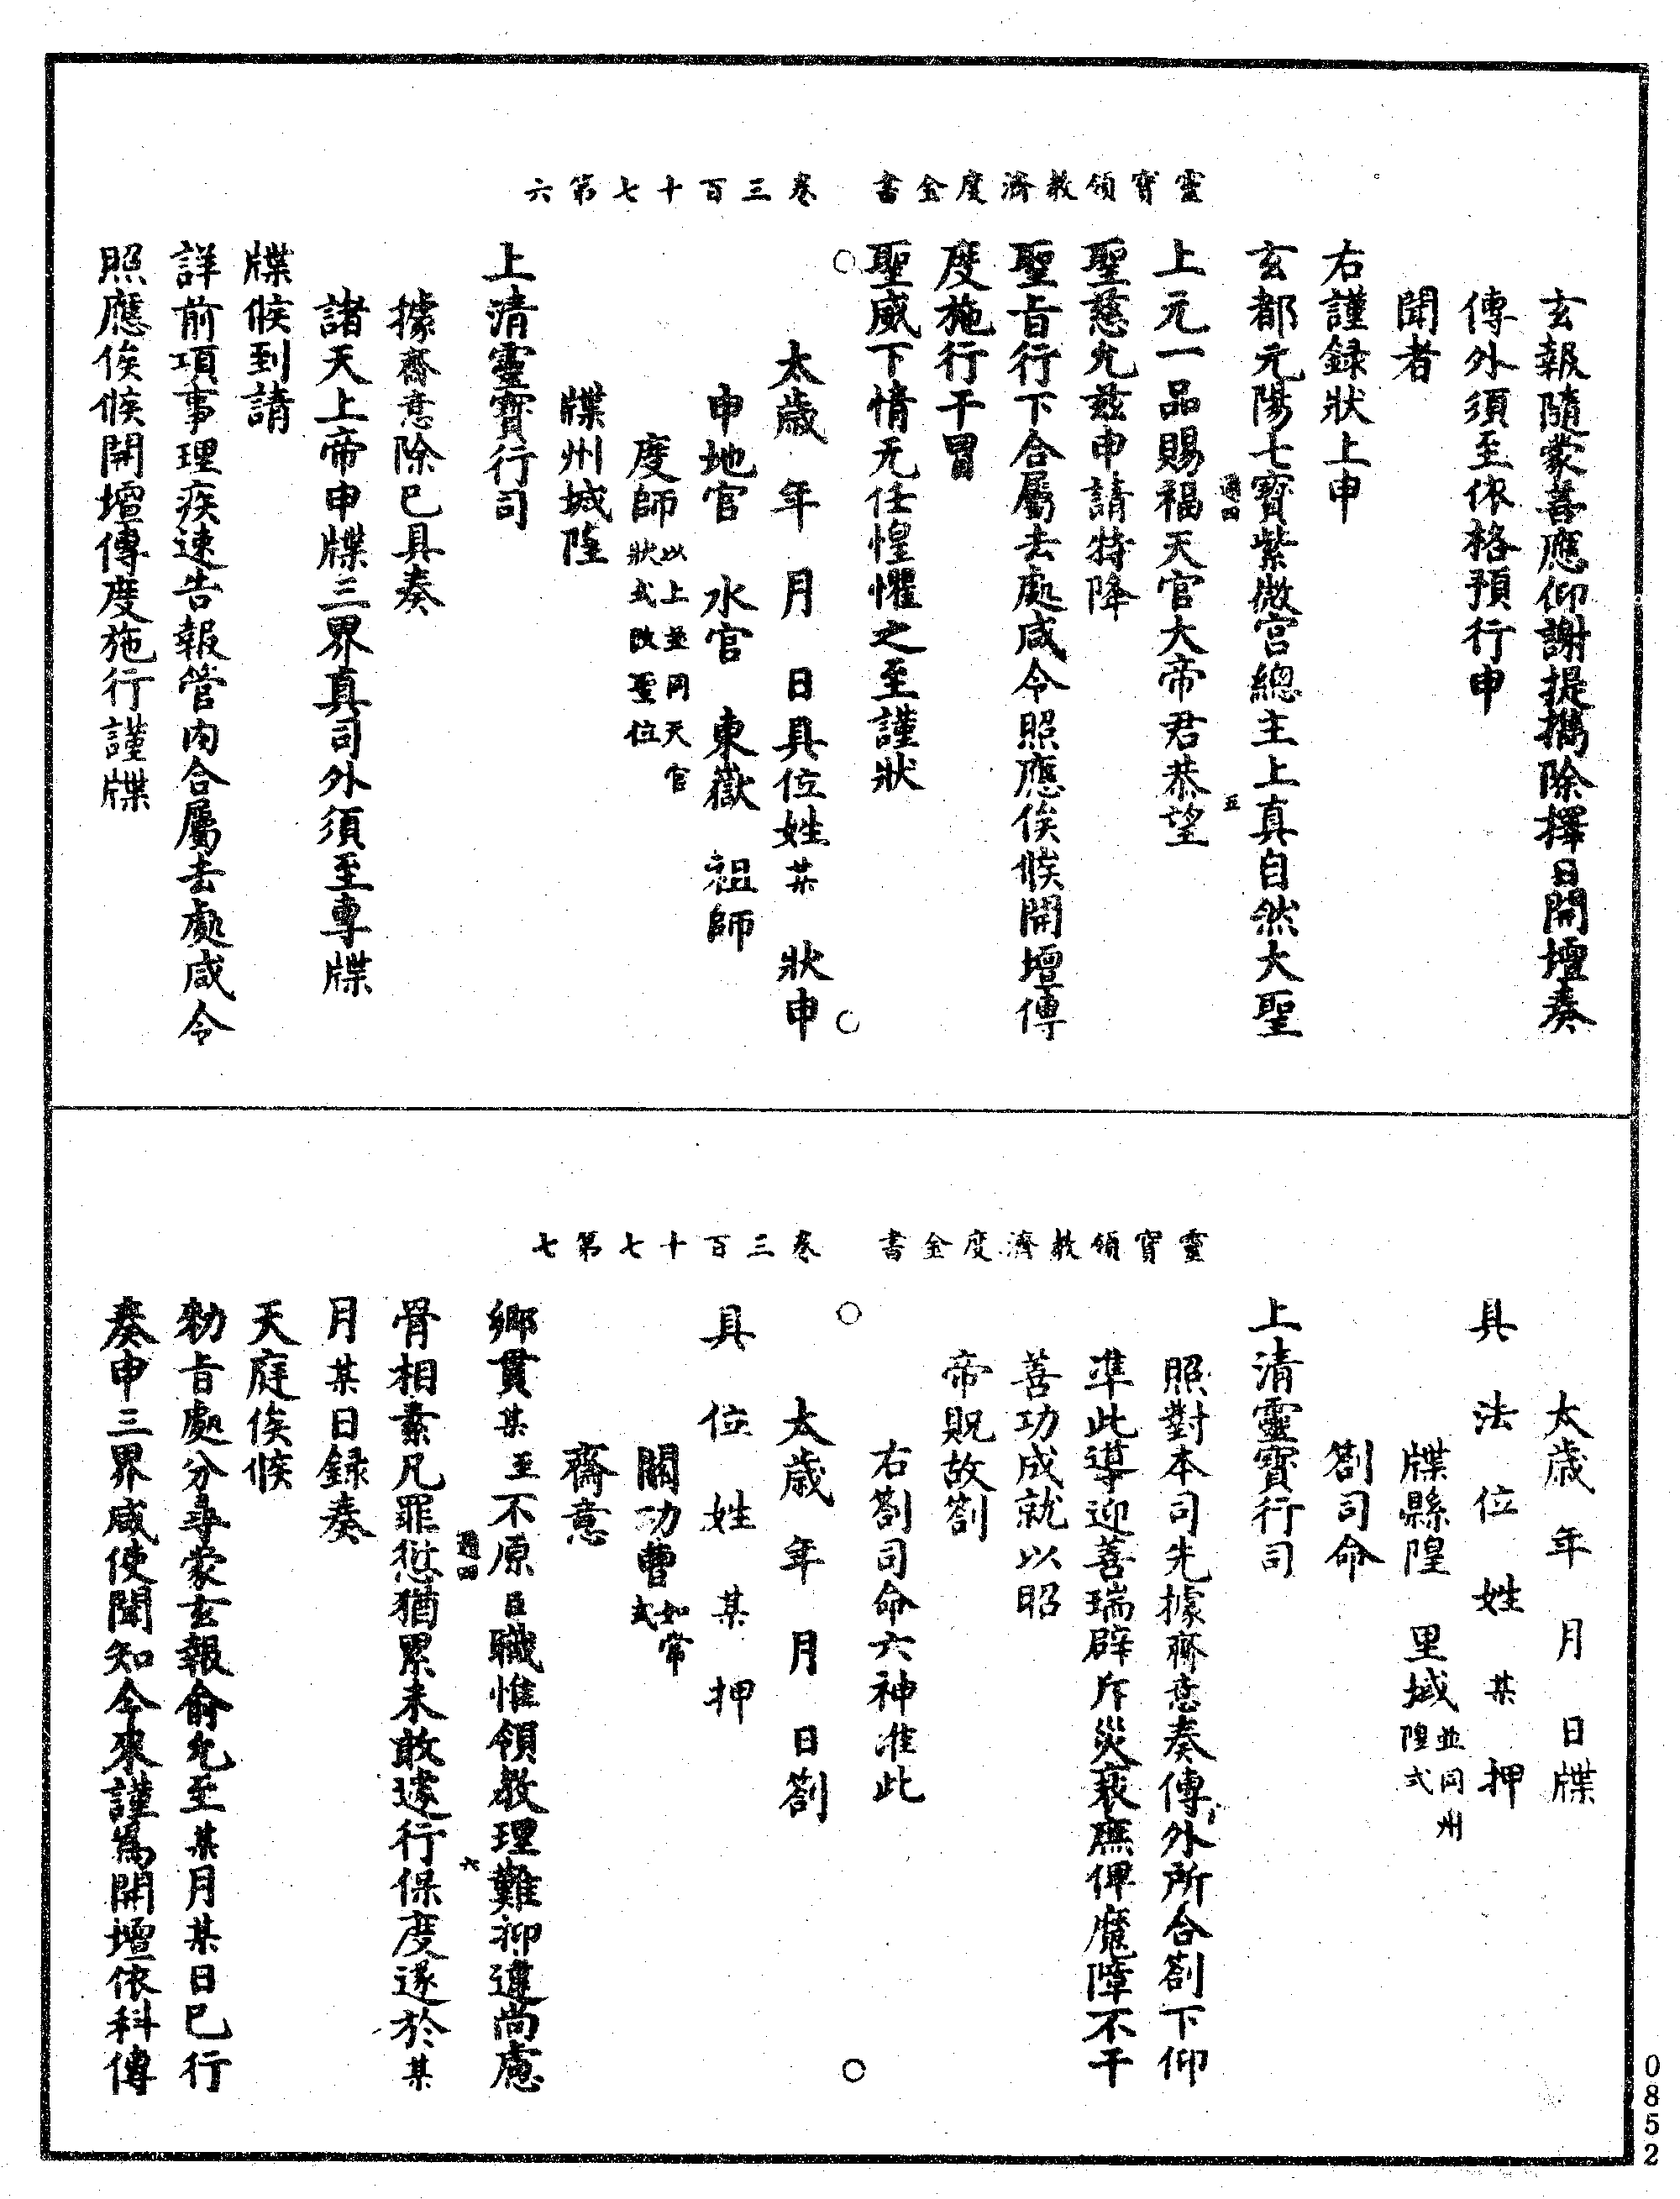 靈寶領教濟度金書　卷三百十七第六
玄報隨蒙善應仰謝提攜除擇日開壇奏
傳外須至依格預行申
聞者
右謹録狀上申
玄都元陽七寶紫微宮總主上真自然大聖
通四　五
上元一品賜福天官大帝君恭望
聖慈允茲申請特降
聖旨行下合屬去處咸令照應俟候開壇傳
度施行干冒
聖威下情无任惶懼之至謹狀
太歲　年　月　日具位姓某　狀申
申地官　水官　東嶽　祖師
度師以上並同天官狀式改聖位
牒州城隍
上清靈寶行司
據齋意除已具奏
諸天上帝申牒三界真司外須至專牒
牒候到請
詳前項事理疾速告報管內合屬去處咸令
照應俟候開壇傳度施行謹牒
靈寶領教濟度金書　卷三百十七第七
太歲　年　月　日牒
具　法　位　姓　某　押
牒縣隍　里域並同州隍式
劄司命
上清靈寶行司
照對本司先據齋意奏傳外所合劄下仰
準此導迎善瑞辟斥災衺庶俾魔障不干
善功成就以昭
帝貺故劄
右劄司命六神准此
太歲　年　月　日劄
具　位　姓　某　押
關功曹如常式
齋意
鄉貫某至不原臣職惟領教理難抑違尚慮
通四　六
骨相素凡罪愆猶累未敢遽行保度遂於某
月某日録奏
天庭俟候
勑旨處分尋蒙玄報俞允至某月某日已行
奏申三界咸使聞知今來謹為開壇依科傳
0852